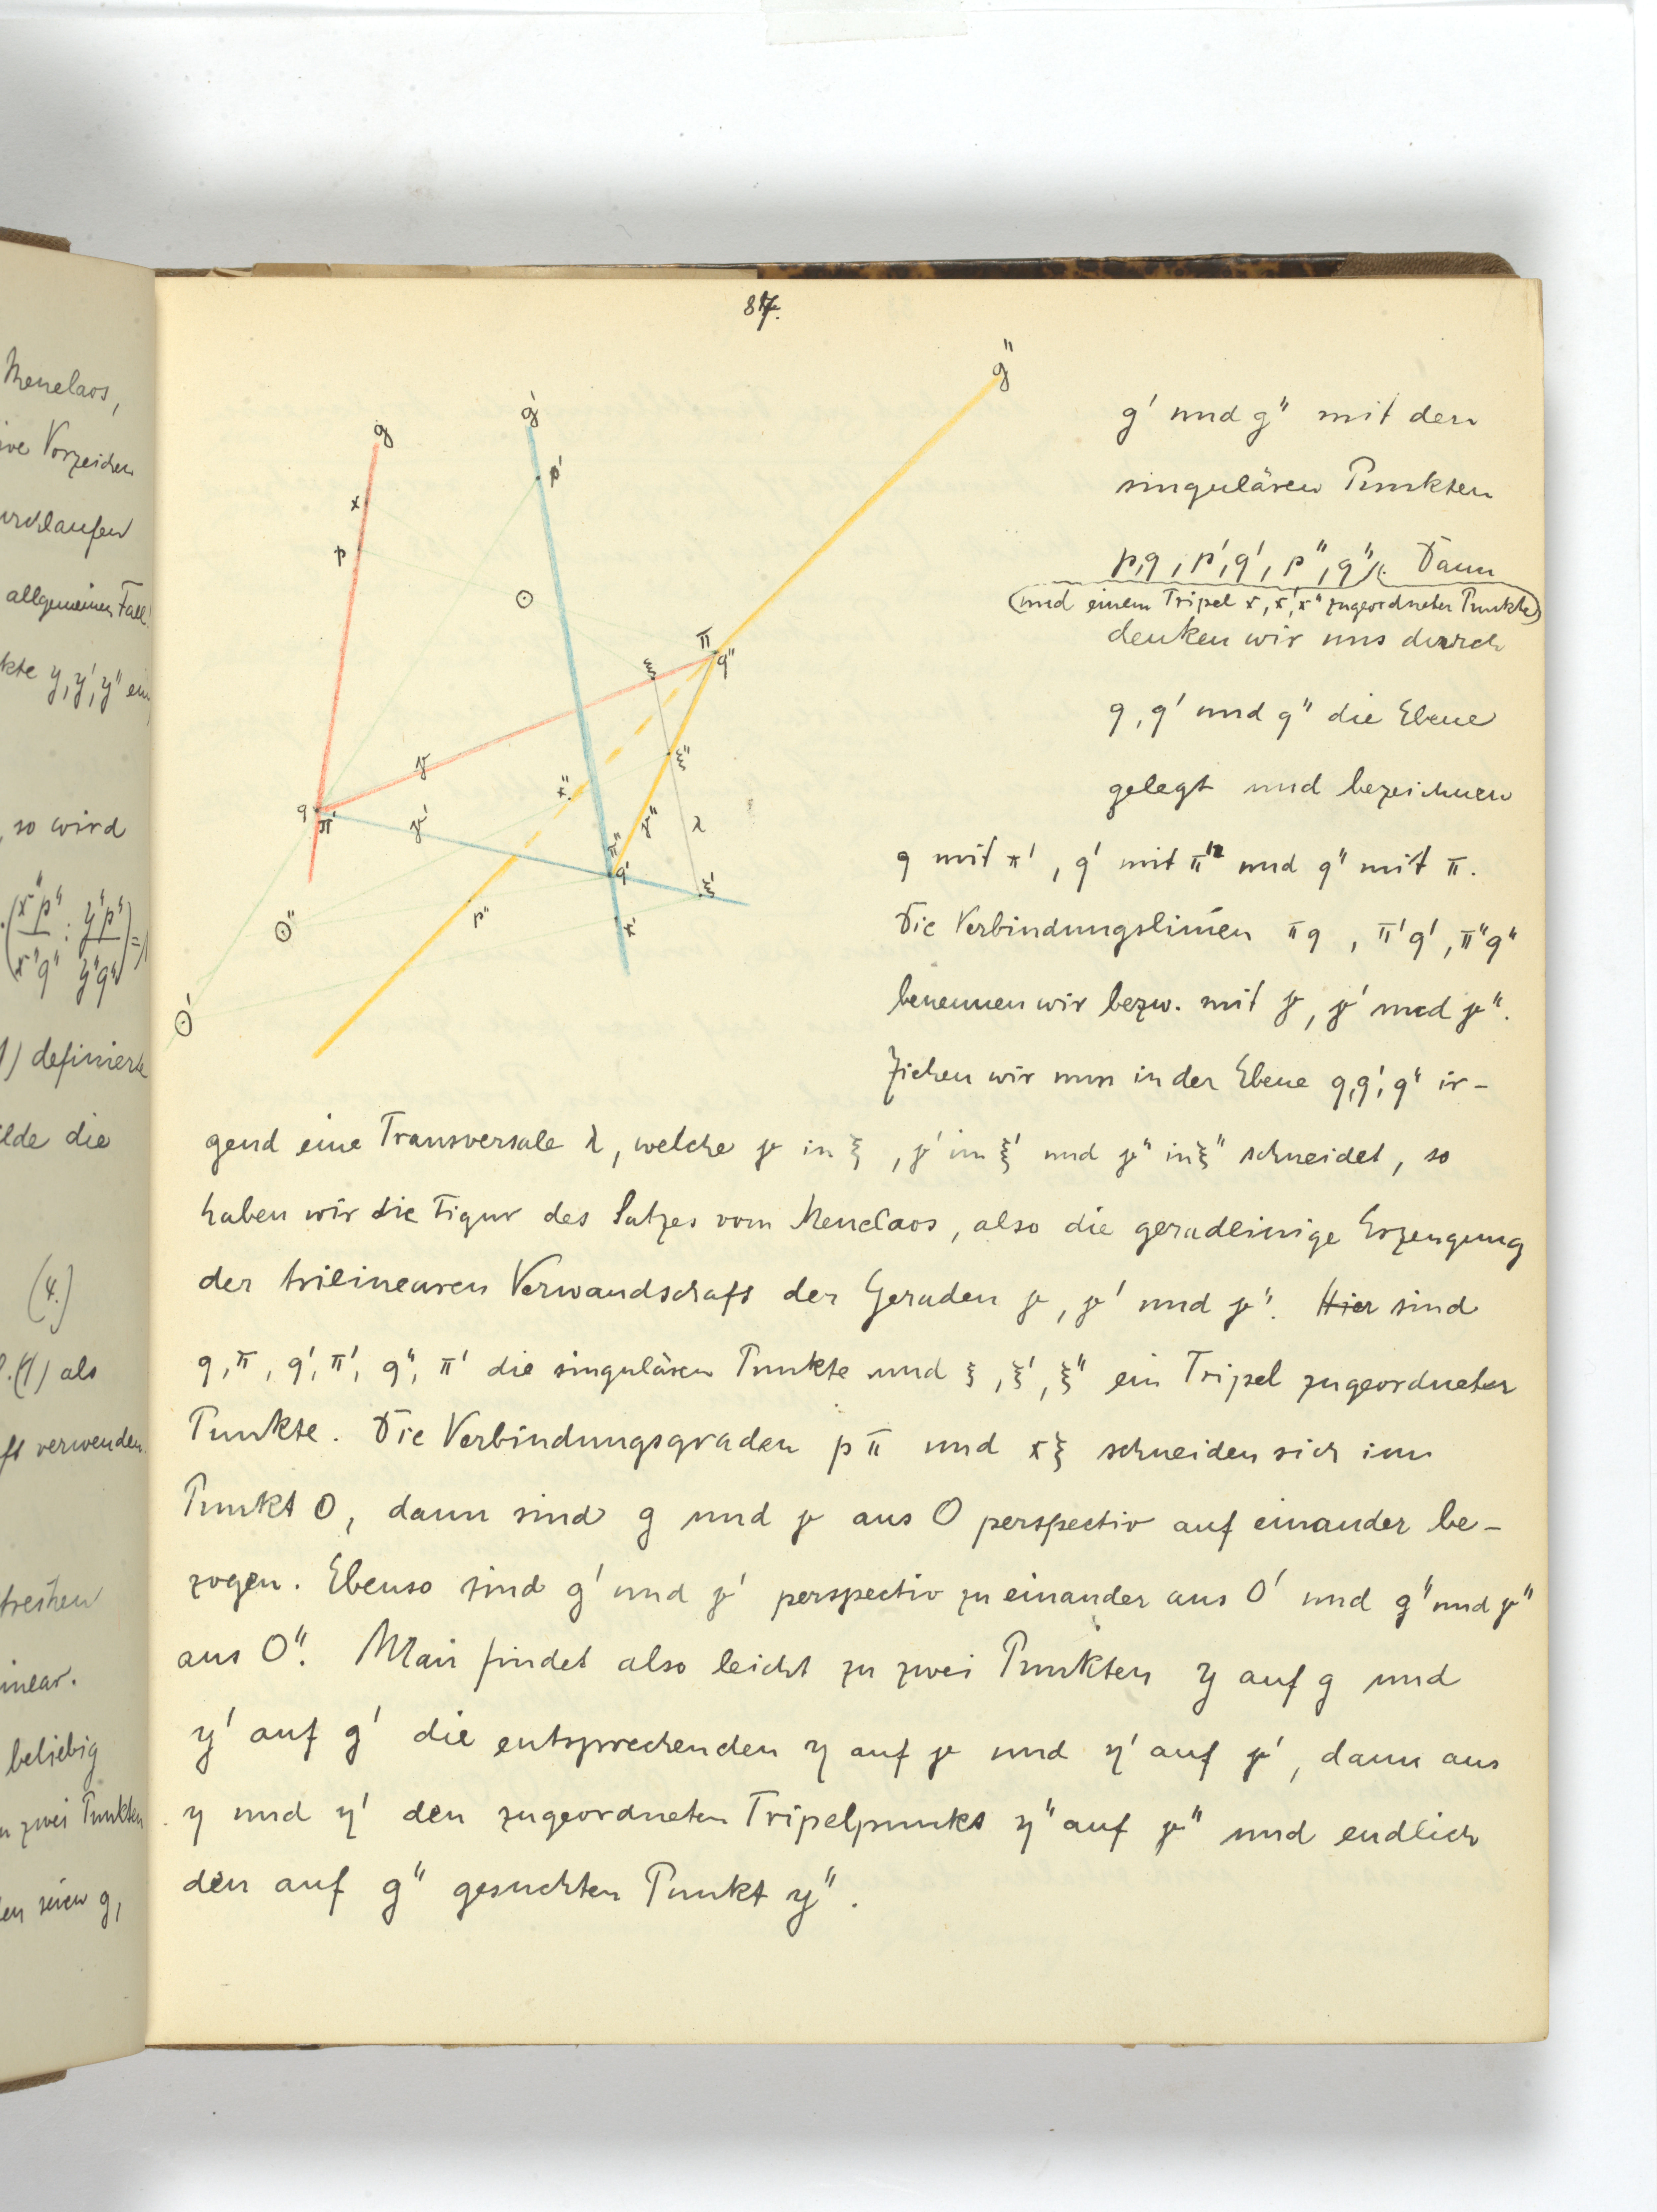 Menelaos,
Vorzeichen
allgemeinen Fall
y, y', y" ein
, so wird
x"p" : y"p"
x"q" y"q"
definierte
die
(4.)
als
verwenden.
beliebig
zwei Punkten
seien g,
87.
g
g'
g"
x
p
p'
O
π
q"
ξ
γ
x"
ξ"
q
π'
γ'
γ"
λ
π"
q'
ξ'
p"
x'
O"
O'
g' und g" mit den
singulären Punkten
p,q, p',q', p",q". Dann
(und einem Tripel x, x', x" zugeordneter Punkte)
denken wir uns durch
q, q' und q" die Ebene
gelegt und bezeichnen
q mit π', q' mit π" und q" mit π.
Die Verbindungslinien πq, π'q', π"q"
benennen wir bezw. mit γ, γ' und γ".
Ziehen wir nun in der Ebene q,q',q" ir-
gend eine Transversale λ, welche γ in ξ, γ' in ξ' und γ" in ξ" schneidet, so
haben wir die Figur des Satzes vom Menelaos, also die geradlinige Erzeugung
der trilinearen Verwandschaft der Geraden γ, γ' und γ". Hier sind
q, π, q', π', q", π' die singulären Punkte und ξ, ξ', ξ" ein Tripel zugeordneter
Punkte. Die Verbindungsgraden pπ und xξ schneiden sich im
Punkt O, dann sind g und γ aus O perspectiv auf einander be-
zogen. Ebenso sind g' und γ' perspectiv zu einander aus O' und g" und γ"
aus O". Man findet also leicht zu zwei Punkten y auf g und
y' auf g' die entsprechenden η auf γ und η' auf γ', dann aus
η und η' den zugeordneten Tripelpunkt η" auf γ" und endlich
den auf g" gesuchten Punkt y".